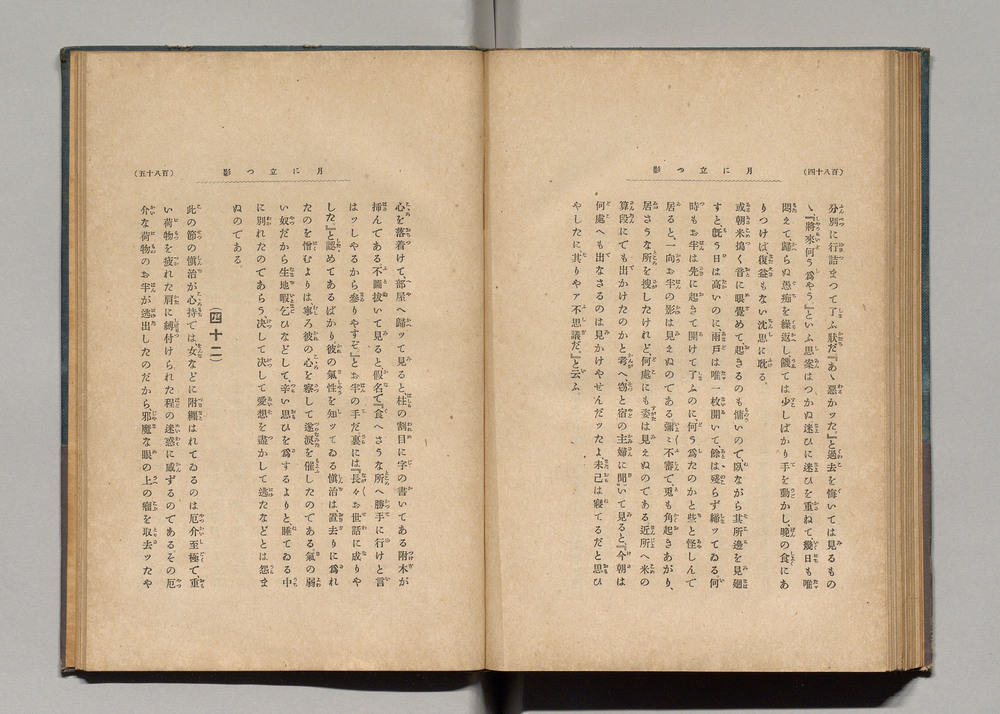 (百八十四)
月に立つ影
分別に行詰まつて了ふ狀だ『あゝ惡かツた』と過去を悔いては見るもの
ゝ『將來何う爲やう』といふ思案はつかぬ迷ひに迷ひを重ねて幾日も唯
悶えて、歸らぬ愚痴を繰返し饑ては少しばかり手を動かし、晩の食にあ
りつけば復益もない沈思に耽る。
或朝米搗く音に眼覺めて起きるのも慵いので臥ながら其所邊を見廻
すと既う日は高いのに、雨戸は唯一枚開いて、餘は殘らず締ツてゐる何
時もお半は先に起きて開けて了ふのに、何う爲たのかと些と怪しんで
居ると、一向お半の影は見えぬのである彌々不審で、兎も角起きあがり、
居さうな所を搜したけれど、何處にも姿は見えぬのである近所へ米の
算段にでも出かけたのかと考へ窃と宿の主婦に聞いて見ると、『今朝は
何處へも出なさるのは見かけやせんだツたよ、未だ己は寢てるだと思ひ
やしたに其りやア不思議だ』と云ふ
(百八十五)
月に立つ影
心を落着けて、部屋へ歸ツて見ると柱の割目に字の書いてある附木が
挿んである不圖拔いて見ると、假名で『食へさうな所へ勝手に行けと言
はツしやるから參りやすぞ』とお半の手だ裏には『長々お世話に成りや
した』と認めてあるばかり彼の氣性を知ツてゐる愼治は、置去りに爲れ
たのを憎むよりは、寧ろ彼の心を察して遂淚を催したのである氣の弱
い奴だから生地暇乞ひなどして、辛い思ひを爲するよりと、睡てゐる中
に別れたのであらう、決して決して愛想を盡かして逃たなどとは怨ま
ぬのである。
(四十二)
此の節の愼治が心持では、女などに附纒はれてゐるのは厄介至極で、重
い荷物を疲れた肩に縛付けられた程の迷惑に感ずるのであるその厄
介な荷物のお半が逃出したのだから、邪魔な眼の上の瘤を取去ツたや